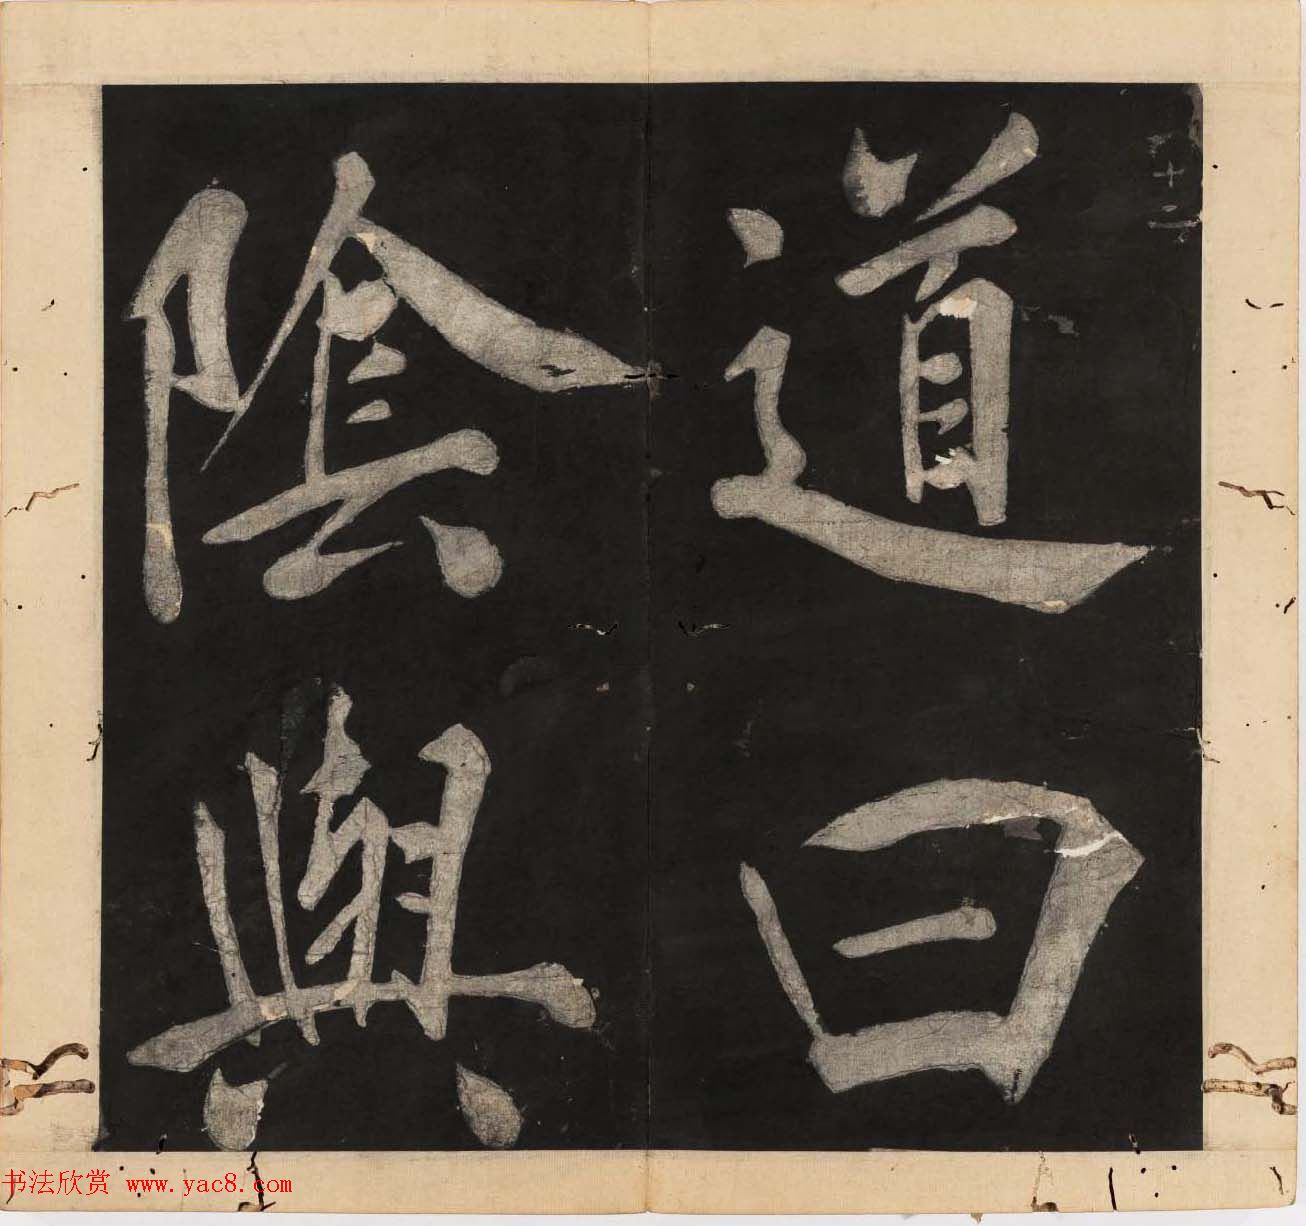 道曰
陰與
书法欣赏 www.yac8.com